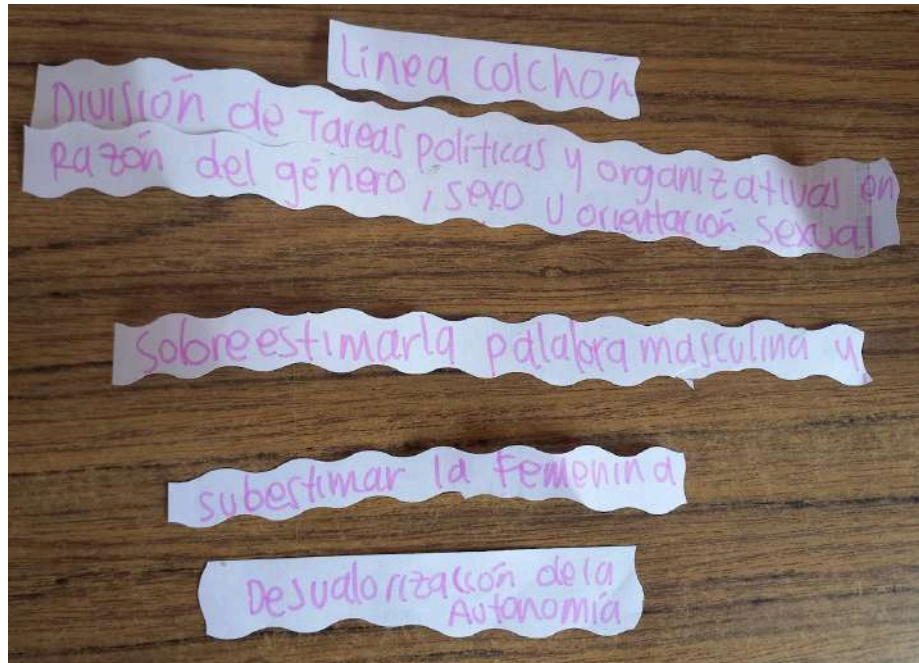 Línea colchón
División de Tareas políticas y organizativas en
Razón del género, sexo u orientación sexual
Sobreestimar la palabra masculina y
subestimar la Femenina
Desvalorización de la
Autonomía